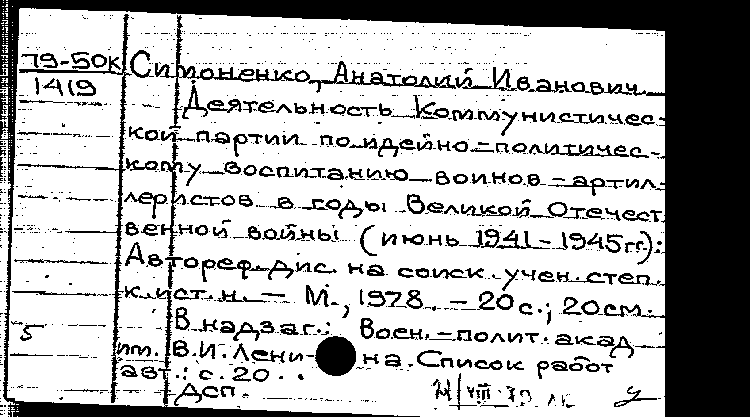 79-50К
1419
Симоненко, Анатолий Иванович.
Деятельность Коммунистичес-
кой партии по идейно-политичес-
кому воспитанию воинов-артил-
леристов в годы Великой Отечест
венной войны (июнь 1941-1945гг):
Автореф. дис. на соиск. учен. степ.
к.ист.н. — М., 1978. — 20 с.; 20см.
В надзаг.: Воен.-полит. акад
5
им. В.И. Лени- на. Список работ
авт.: с. 20..
ДСП.